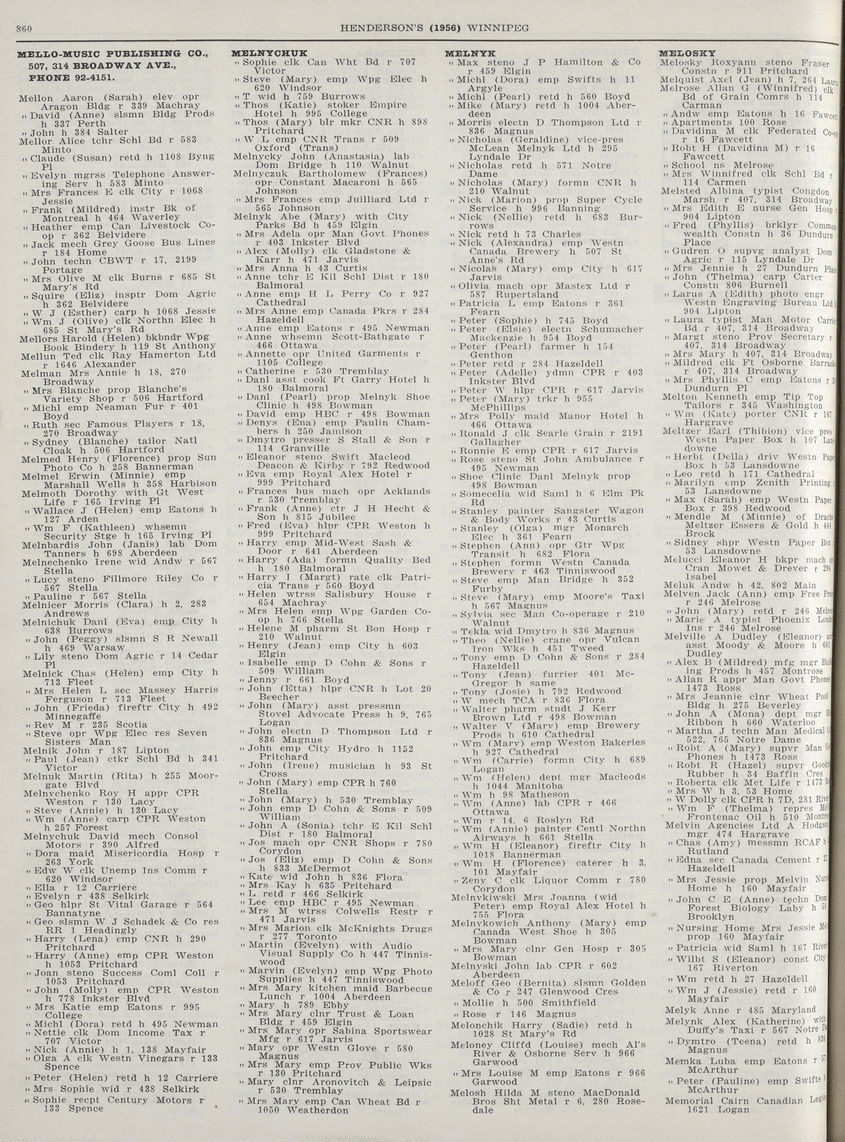 860
HENDERSON'S (1956) WINNIPEG
MELLO-MUSIC PUBLISHING CO.,
507, 314 BROADWAY AVE.,
PHONE 92-4151.
Mellon Aaron (Sarah) elev opr
Aragon Bldg r 339 Machray
" David (Anne) slsmn Bldg Prods
h 337 Perth
" John h 384 Salter
Mellor Alice tchr Schl Bd r 583
Minto
" Claude (Susan) retd h 1108 Byng
Pl
" Evelyn mgrss Telephone Answer-
ing Serv h 583 Minto
" Mrs Frances E clk City r 1068
Jessie
" Frank (Mildred) instr Bk of
Montreal h 464 Waverley
" Heather emp Can Livestock Co-
op r 362 Belvidere
" Jack mech Grey Goose Bus Lines
r 184 Home
" John techn CBWT r 17, 2199
Portage
" Mrs Olive M clk Burns r 685 St
Mary's Rd
" Squire (Eliz) insptr Dom Agric
h 362 Belvidere
" W J (Esther) carp h 1068 Jessie
" Wm J (Olive) clk Northn Elec h
685 St Mary's Rd
Mellors Harold (Helen) bkbndr Wpg
Book Bindery h 119 St Anthony
Mellun Ted clk Ray Hamerton Ltd
r 1646 Alexander
Melman Mrs Annie h 18, 270
Broadway
" Mrs Blanche prop Blanche's
Variety Shop r 506 Hartford
" Michl emp Neaman Fur r 401
Boyd
" Ruth sec Famous Players r 18,
270 Broadway
" Sydney (Blanche) tailor Natl
Cloak h 506 Hartford
Melmed Henry (Florence) prop Sun
Photo Co h 258 Bannerman
Melmel Erwin (Minnie) emp
Marshall Wells h 358 Harbison
Melmoth Dorothy with Gt West
Life r 165 Irving Pl
" Wallace J (Helen) emp Eatons h
127 Arden
" Wm F (Kathleen) whsemn
Security Stge h 165 Irving Pl
Melnbardis John (Janis) lab Dom
Tanners h 698 Aberdeen
Melnechenko Irene wid Andw r 567
Stella
" Lucy steno Fillmore Riley Co r
567 Stella
" Pauline r 567 Stella
Melnicer Morris (Clara) h 2, 283
Andrews
Melnichuk Danl (Eva) emp City h
638 Burrows
" John (Peggy) slsmn S R Newall
h 469 Warsaw
" Lily steno Dom Agric r 14 Cedar
Pl
Melnick Chas (Helen) emp City h
713 Fleet
" Mrs Helen L sec Massey Harris
Ferguson r 713 Fleet
" John (Frieda) fireftr City h 492
Minnegaffe
" Rev M r 235 Scotia
" Steve opr Wpg Elec res Seven
Sisters Man
Melnik John r 187 Lipton
" Paul (Jean) ctkr Schl Bd h 341
Victor
Melnuk Martin (Rita) h 255 Moor-
gate Blvd
Melnychenko Roy H appr CPR
Weston r 130 Lacy
" Steve (Annie) h 130 Lacy
" Wm (Anne) carp CPR Weston
h 257 Forest
Melnychuk David mech Consol
Motors r 390 Alfred
" Dora maid Misericordia Hosp r
263 York
" Edw W clk Unemp Ins Comm r
620 Windsor
" Ella r 12 Carriere
" Evelyn r 438 Selkirk
" Geo hlpr St Vital Garage r 564
Bannatyne
" Geo slsmn W J Schadek & Co res
RR 1 Headingly
" Harry (Lena) emp CNR h 290
Pritchard
" Harry (Anne) emp CPR Weston
h 1053 Pritchard
" Joan steno Success Coml Coll r
1053 Pritchard
" John (Molly) emp CPR Weston
h 778 Inkster Blvd
" Mrs Katie emp Eatons r 995
College
" Michl (Dora) retd h 495 Newman
" Nettie clk Dom Income Tax r
707 Victor
" Nick (Annie) h 1, 138 Mayfair
" Olga A clk Westn Vinegars r 133
Spence
" Peter (Helen) retd h 12 Carriere
" Mrs Sophie wid r 438 Selkirk
" Sophie recpt Century Motors r
133 Spence
MELNYCHUK
" Sophie clk Can Wht Bd r 707
Victor
" Steve (Mary) emp Wpg Elec h
620 Windsor
" T wid h 759 Burrows
" Thos (Katie) stoker Empire
Hotel h 995 College
" Thos (Mary) blr mkr CNR h 898
Pritchard
" W L emp CNR Trans r 509
Oxford (Trans)
Melnycky John (Anastasia) lab
Dom Bridge h 110 Walnut
Melnyczuk Bartholomew (Frances)
opr Constant Macaroni h 565
Johnson
" Mrs Frances emp Juilliard Ltd r
565 Johnson
Melnyk Abe (Mary) with City
Parks Bd h 459 Elgin
" Mrs Adela opr Man Govt Phones
r 403 Inkster Blvd
" Alex (Molly) clk Gladstone &
Karr h 471 Jarvis
" Mrs Anna h 43 Curtis
" Anne tchr E Kil Schl Dist r 180
Balmoral
" Anne emp H L Perry Co r 927
Cathedral
" Mrs Anne emp Canada Pkrs r 284
Hazeldell
" Anne emp Eatons r 495 Newman
" Anne whsemn Scott-Bathgate r
466 Ottawa
" Annette opr United Garments r
1105 College
" Catherine r 530 Tremblay
" Danl asst cook Ft Garry Hotel h
180 Balmoral
" Danl (Pearl) prop Melnyk Shoe
Clinic h 498 Bowman
" David emp HBC r 498 Bowman
" Denys (Ena) emp Paulin Cham-
bers h 250 Jamison
" Dmytro presser S Stall & Son r
114 Granville
" Eleanor steno Swift Macleod
Deacon & Kirby r 792 Redwood
" Eva emp Royal Alex Hotel r
999 Pritchard
" Frances bus mach opr Acklands
r 530 Tremblay
" Frank (Anne) ctr J H Hecht &
Son h 815 Jubilee
" Fred (Eva) hlpr CPR Weston h
999 Pritchard
" Harry emp Mid-West Sash &
Door r 641 Aberdeen
" Harry (Ada) formn Quality Bed
h 180 Balmoral
" Harry I (Margt) rate clk Patri-
cia Trans r 560 Boyd
" Helen wtrss Salisbury House r
654 Machray
" Mrs Helen emp Wpg Garden Co-
op h 766 Stella
" Helene M pharm St Bon Hosp r
210 Walnut
" Henry (Jean) emp City h 603
Elgin
" Isabelle emp D Cohn & Sons r
509 William
" Jenny r 661 Boyd
" John (Etta) hlpr CNR h Lot 20
Beecher
" John (Mary) asst pressmn
Stovel Advocate Press h 9, 765
Logan
" John electn D Thompson Ltd r
836 Magnus
" John emp City Hydro h 1152
Pritchard
" John (Irene) musician h 93 St
Cross
" John (Mary) emp CPR h 760
Stella
" John (Mary) h 530 Tremblay
" John emp D Cohn & Sons r 509
William
" John A (Sonia) tchr E Kil Schl
Dist r 180 Balmoral
" Jos mach opr CNR Shops r 780
Corydon
" Jos (Eliz) emp D Cohn & Sons
h 833 McDermot
" Kate wid John h 836 Flora
" Mrs Kay h 635 Pritchard
" L retd r 466 Selkirk
" Lee emp HBC r 495 Newman
" Mrs M wtrss Colwells Restr r
471 Jarvis
" Mrs Marion clk McKnights Drugs
r 277 Toronto
" Martin (Evelyn) with Audio
Visual Supply Co h 447 Tinnis-
wood
" Marvin (Evelyn) emp Wpg Photo
Supplies h 447 Tinniswood
" Mrs Mary kitchen maid Barbecue
Lunch r 1004 Aberdeen
" Mary h 789 Ebby
" Mrs Mary clnr Trust & Loan
Bldg r 459 Elgin
" Mrs Mary opr Sabina Sportswear
Mfg r 617 Jarvis
" Mary opr Westn Glove r 580
Magnus
" Mrs Mary emp Prov Public Wks
r 130 Pritchard
" Mary clnr Aronovitch & Leipsic
r 530 Tremblay
" Mrs Mary emp Can Wheat Bd r
1050 Weatherdon
MELNYK
" Max steno J P Hamilton & Co
r 459 Elgin
" Michl (Dora) emp Swifts h 11
Argyle
" Michl (Pearl) retd h 560 Boyd
" Mike (Mary) retd h 1004 Aber-
deen
" Morris electn D Thompson Ltd r
836 Magnus
" Nicholas (Geraldine) vice-pres
McLean Melnyk Ltd h 295
Lyndale Dr
" Nicholas retd h 571 Notre
Dame
" Nicholas (Mary) formn CNR h
210 Walnut
" Nick (Marion) prop Super Cycle
Service h 996 Banning
" Nick (Nellie) retd h 683 Bur-
rows
" Nick retd h 73 Charles
" Nick (Alexandra) emp Westn
Canada Brewery h 507 St
Anne's Rd
" Nicolas (Mary) emp City h 617
Jarvis
" Olivia mach opr Mastex Ltd r
587 Rupertsland
" Patricia L emp Eatons r 361
Fearn
" Peter (Sophie) h 745 Boyd
" Peter (Elsie) electn Schumacher
Mackenzie h 954 Boyd
" Peter (Pearl) farmer h 154
Genthon
" Peter retd r 284 Hazeldell
" Peter (Adella) ydmn CPR r 403
Inkster Blvd
" Peter W hlpr CPR r 617 Jarvis
" Peter (Mary) trkr h 955
McPhillips
" Mrs Polly maid Manor Hotel h
466 Ottawa
" Ronald J clk Searle Grain r 2191
Gallagher
" Ronnie E emp CPR r 617 Jarvis
" Rose steno St John Ambulance r
495 Newman
" Shoe Clinic Danl Melnyk prop
498 Bowman
" Somecelia wid Saml h 6 Elm Pk
Rd
" Stanley painter Sangster Wagon
& Body Works r 43 Curtis
" Stanley (Olga) mgr Monarch
Elec h 361 Fearn
" Stephen (Ann) opr Gtr Wpg
Transit h 682 Flora
" Stephen formn Westn Canada
Brewery r 463 Tinniswood
" Steve emp Man Bridge h 352
Furby
" Steve (Mary) emp Moore's Taxi
h 567 Magnus
" Sylvia sec Man Co-operage r 210
Walnut
" Tekla wid Dmytro h 836 Magnus
" Theo (Nellie) crane opr Vulcan
Iron Wks h 451 Tweed
" Tony emp D Cohn & Sons r 284
Hazeldell
" Tony (Jean) furrier 401 Mc-
Gregor h same
" Tony (Josie) h 792 Redwood
" W mech TCA r 836 Flora
" Walter pharm studt J Kerr
Brown Ltd r 498 Bowman
" Walter V (Mary) emp Brewery
Prods h 610 Cathedral
" Wm (Mary) emp Weston Bakeries
h 927 Cathedral
" Wm (Carrie) formn City h 689
Logan
" Wm (Helen) dept mgr Macleods
h 1044 Manitoba
" Wm h 98 Matheson
" Wm (Anne) lab CPR r 466
Ottawa
" Wm r 14, 6 Roslyn Rd
" Wm (Annie) painter Centl Northn
Airways h 661 Stella
" Wm H (Eleanor) fireftr City h
1018 Bannerman
" Wm H (Florence) caterer h 3,
101 Mayfair
" Zeny C clk Liquor Comm r 780
Corydon
Melnykiwski Mrs Joanna (wid
Peter) emp Royal Alex Hotel h
755 Flora
Melnykowich Anthony (Mary) emp
Canada West Shoe h 305
Bowman
" Mrs Mary clnr Gen Hosp r 305
Bowman
Melnyski John lab CPR r 602
Aberdeen
Meloff Geo (Bernita) slsmn Golden
& Co r 247 Glenwood Cres
" Mollie h 500 Smithfield
" Rose r 146 Magnus
Melonchik Harry (Sadie) retd h
1028 St Mary's Rd
Meloney Cliffd (Louise) mech Al's
River & Osborne Serv h 966
Garwood
" Mrs Louise M emp Eatons r 966
Garwood
Melosh Hilda M steno MacDonald
Bros Sht Metal r 6, 280 Rose-
dale
MELOSKY
Melosky Roxyann steno Fraser
Constn r 911 Pritchard
Melquist Axel (Jean) h 7, 264
Melrose Allan G (Winnifred) clk
Bd of Grain Comrs h 114
Carman
" Andw emp Eatons h 16
" Apartments 100 Rose
" Davidina M clk Federated
r 16 Fawcett
" Robt H (Davidina M) r 16
Fawcett
" School ns Melrose
" Mrs Winnifred clk Schl Bd r
114 Carmen
Melsted Albina typist Congdon
Marsh r 407, 314 Broadway
" Mrs Edith E nurse Gen Hosp
904 Lipton
" Fred (Phyllis) brklyr
wealth Constn h 36 Dundurn
Place
" Gudren O supvg analyst Dom
Agric r 115 Lyndale Dr
" Mrs Jennie h 27 Dundurn
" John (Thelma) carp Carter
Constn 806 Burnell
" Larus A (Edith) photo engr
Westn Engraving Bureau
904 Lipton
" Laura typist Man Motor
Bd r 407, 314 Broadway
" Margt steno Prov Secretary r
407, 314 Broadway
" Mrs Mary h 407, 314 Broadway
" Mildred clk Ft Osborne
r 407, 314 Broadway
" Mrs Phyllis C emp Eatons r
Dundurn Pl
Melton Kenneth emp Tip Top
Tailors r 345 Washington
" Wm (Kate) porter CNR r 167
Hargrave
Meltzer Earl (Thibion) vice pres
Westn Paper Box h 107
downe
" Herbt (Della) driv Westn
Box h 53 Lansdowne
" Leo retd h 171 Cathedral
" Marilyn emp Zenith Printing
53 Lansdowne
" Max (Sarah) emp Westn Paper
Box r 398 Redwood
" Mendle M (Minnie) of
Meltzer Essers & Gold h
Brock
" Sidney shpr Westn Paper
53 Lansdowne
Melucci Eleanor H bkpr mach
Cran Mowet & Drever r
Isabel
Meluk Andw h 42, 802 Main
Melven Jack (Ann) emp Free
r 246 Melrose
" John (Mary) retd r 246
" Marie A typist Phoenix
Ins r 246 Melrose
Melville A Dudley (Eleanor)
asst Moody & Moore h
Dudley
" Alex B (Mildred) mfg mgr
ing Prods h 457 Montrose
" Allan R appr Man Govt
1473 Ross
" Mrs Jeannie clnr Wheat
Bldg h 275 Beverley
" John A (Mona) dept mgr
Ribbon h 660 Waterloo
" Martha J techn Man Medical
522, 765 Notre Dame
" Robt A (Mary) supvr Man
Phones h 1473 Ross
" Robt R (Hazel) supvr
Rubber h 34 Baffin Cres
" Roberta clk Met Life r 1473
" Mrs W h 3, 53 Home
" W Dolly clk CPR h 7D, 281
" Wm F (Thelma) repres
Frontenac Oil h 510
Melvin Agencies Ltd A
mgr 474 Hargrave
" Chas (Amy) messmn RCAF h
Rutland
" Edna sec Canada Cement r
Hazeldell
" Mrs Jessie prop Melvin
Home h 160 Mayfair
" John C E (Anne) techn Dom
Forest Biology Laby h
Brooklyn
" Nursing Home Mrs Jessie
prop 160 Mayfair
" Patricia wid Saml h 167
" Wilbt S (Eleanor) const City
167 Riverton
" Wm retd h 27 Hazeldell
" Wm J (Jessie) retd r 160
Mayfair
Melyk Anne r 485 Maryland
Melynk Alex (Katherine)
Duffy's Taxi r 567 Notre
" Dymtro (Teena) retd h
Magnus
Memka Luba emp Eatons r
McArthur
" Peter (Pauline) emp Swifts
McArthur
Memorial Cairn Canadian
1621 Logan